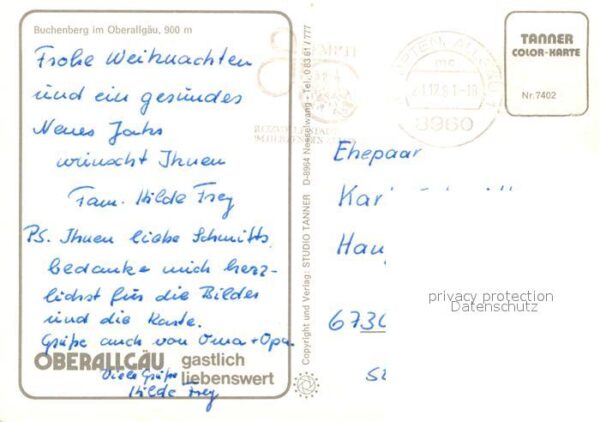 Buchenberg im Oberallgäu, 900 m
Frohe Weihnachten
und ein gesundes
Neues Jahr
wünscht Ihnen
Fam. Hilde Frey
PS. Ihnen liebe Schmitts,
bedanke mich herz-
lichst für die Bilder
und die Karte.
Grüße auch von Oma + Opa
OBERALLGÄU gastlich
liebenswert
Viele Grüße
Hilde Frey
Copyright und Verlag: STUDIO TANNER D-8964 Nesselwang - Tel. 0 83 61 / 777
8960
TANNER
COLOR-KARTE
Nr. 7402
Ehepaar
privacy protection
Datenschutz